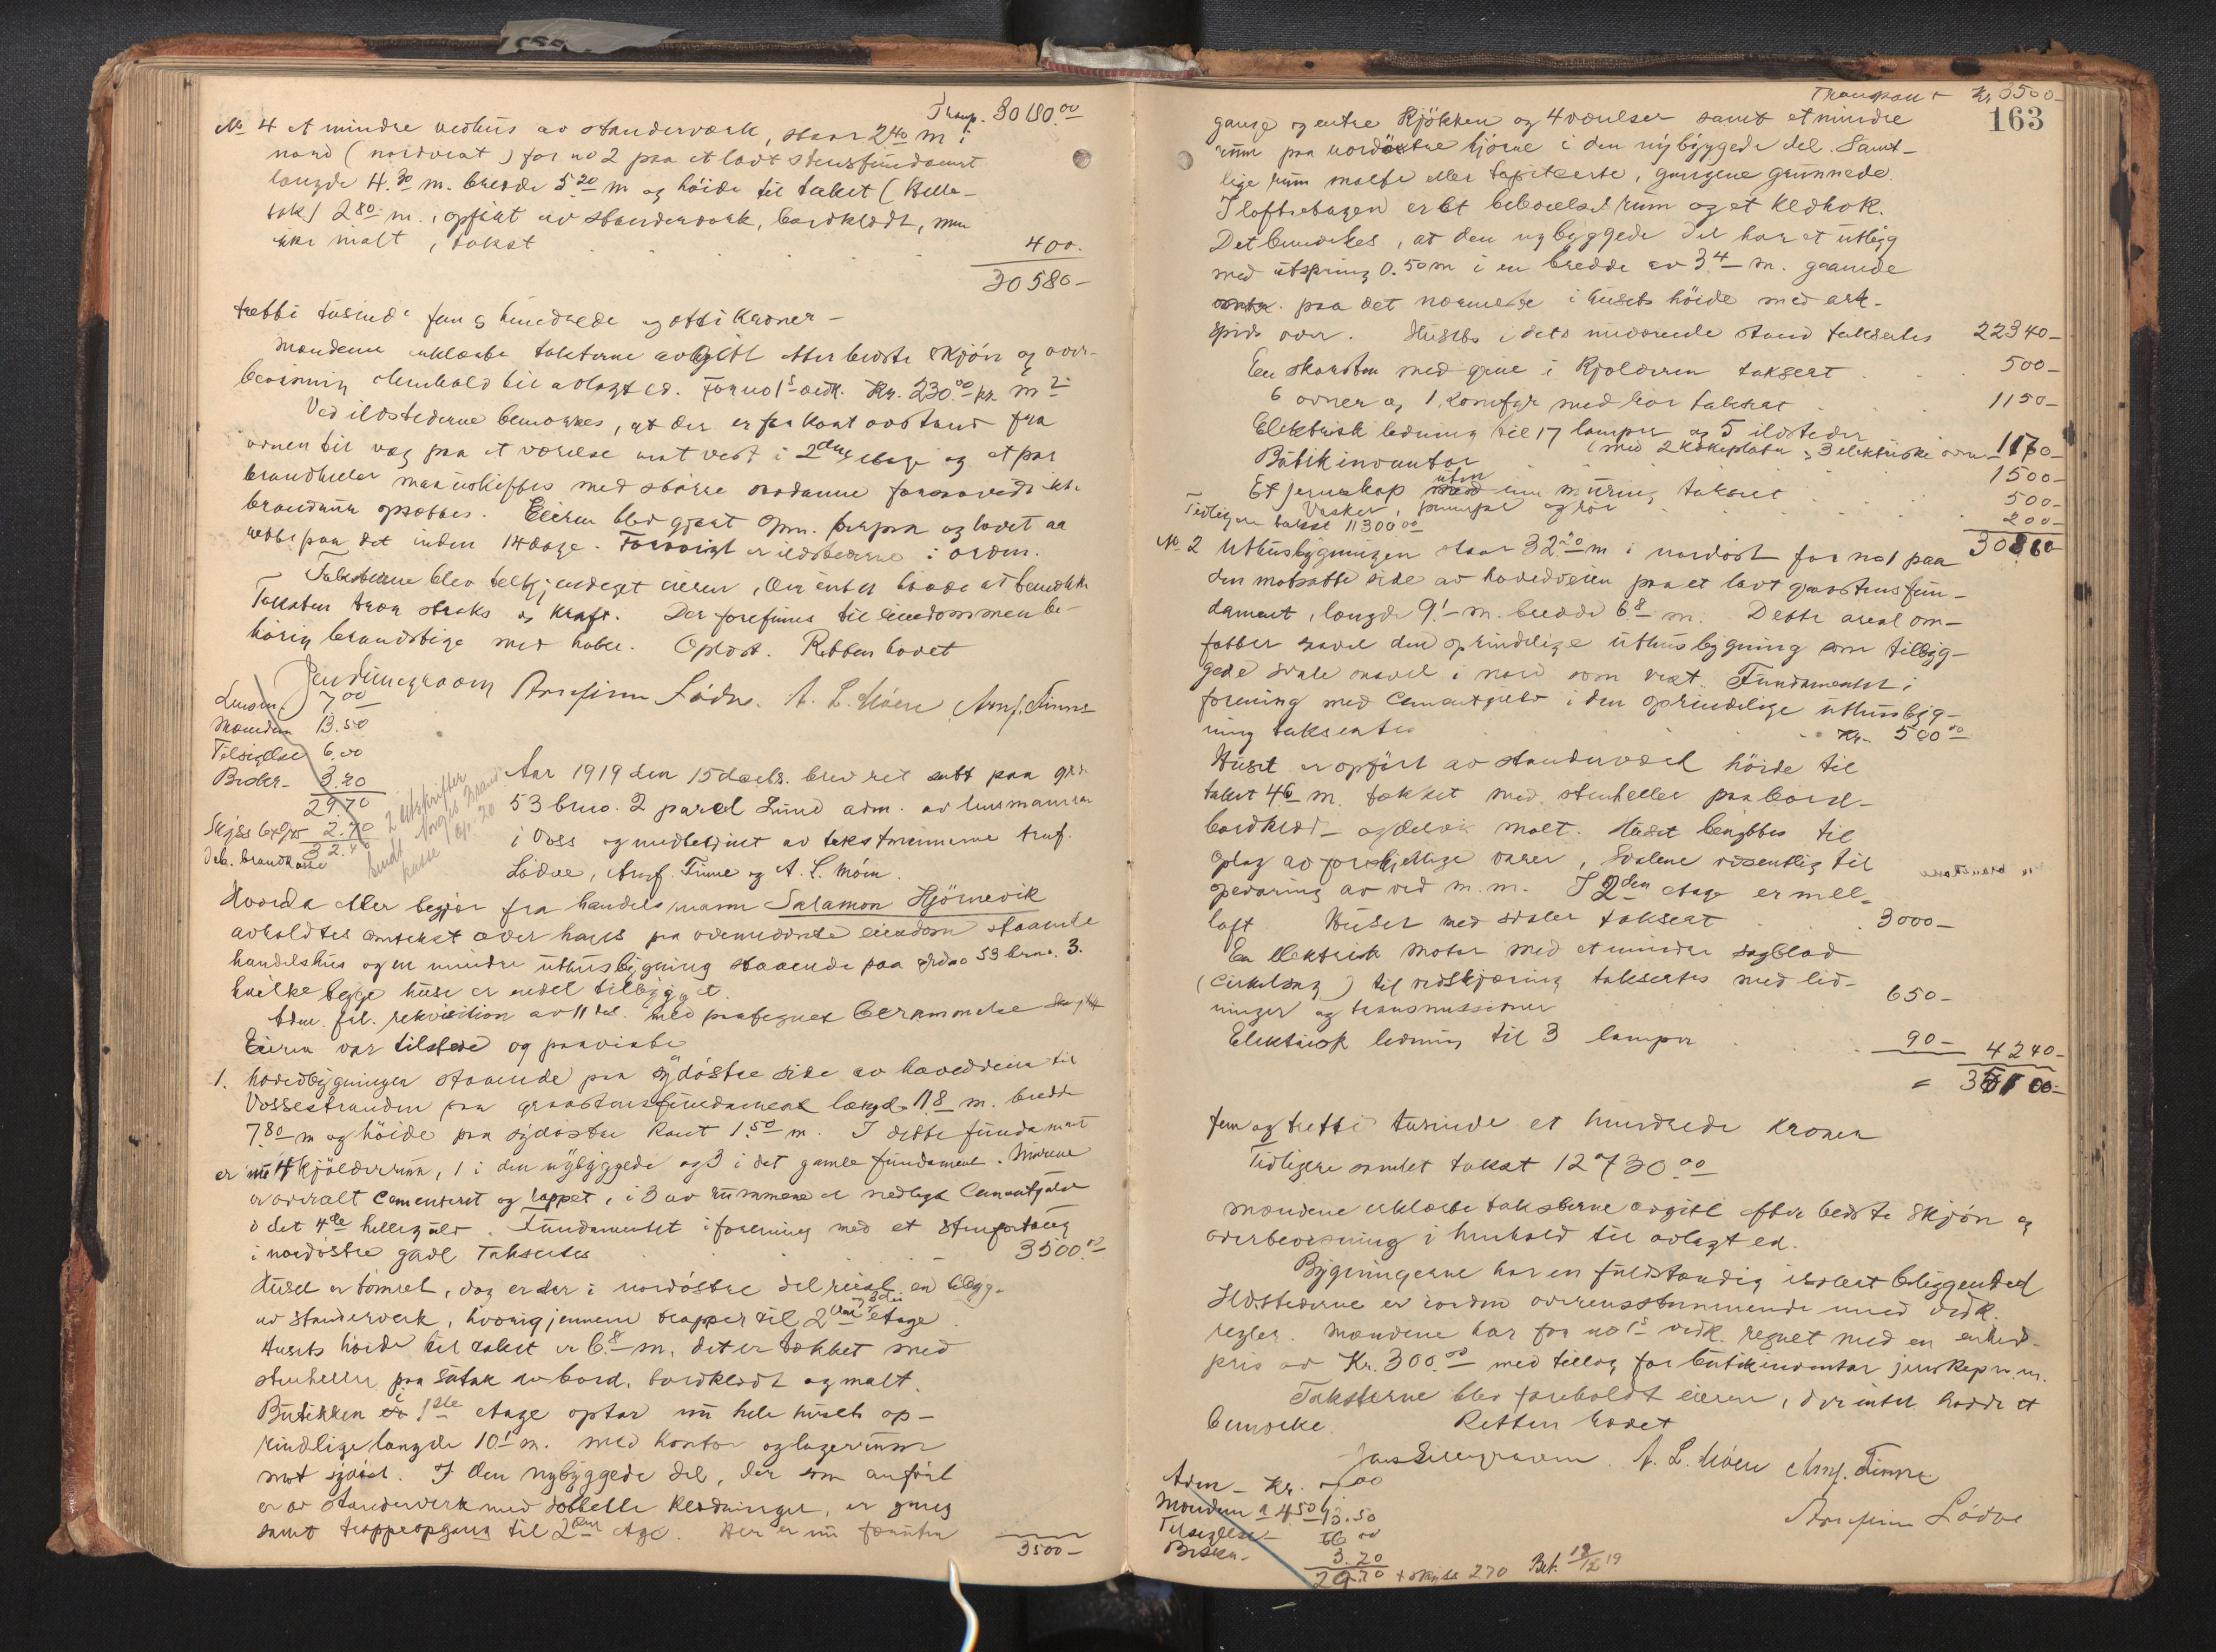 Transp. 30180.00
No 4 et mindre vedhus av standerværk, staar 2.40 m i
nord (nordvest) for no 2 paa et lavt stensfundament
længde 4.30 m. bredde 5.20 m og höide til taket (Helle-
tak) 2.80 m., opfört av standerværk, bordklædt, men
ikke malt, takst 400.
30580-
tretti tusinde fem hundrede og otti kroner -
Mændene erklærte taksterne avgitt efter bedste skjön og over-
bevisning i henhold til avlagt ed. For no 1s vedk. Kr. 230.00 pr. m2
Ved ildstederne bemerkes, at der er for kort avstand fra
ovnen til væg paa et værelse mot vest i 2den etage og et par
brandheller maa utskiftes med större saadanne forsaavidt ikke
brandmur opsættes. Eieren blev gjort opm. herpaa og lovet aa
rette paa det inden 14 dage. Forövrigt er ildstederne i orden.
Taksterne blev tilkjendegit eieren, der intet hadde at bemerke
Taksten træ straks i kraft. Der forefinnes til eiendommen be-
hörig brandstige med haker. Oplæst. Retten hævet
Arnfinn Lödve. A. L. Móen Arnf. Finne
Lensm. 7.00
Mændene 13.50
Tilsigelse 6.00
Besker- 3.20
29.70
Skjss 6x9 2.70
32.40
Deb. brandkasse
2 utskrifter
sendt Norges Brand-
kasse
Aar 1919 den 15 decbr. blev ret satt paa grd.
53 brno. 2 parcel Lund adm. av lensmannen
i Voss og medbetjent av takstmennene Arnf.
Lödve, Arnf. Finne og A. L. Móen.
Hvorda efter begjær fra handelsmann Salamon Hjörnevik
avholdtes omtakst over hans paa ovennævnte eiendom staaende
handelshus og en mindre uthusbygning staaende paa grdno 53 brno. 3.
hvilke begge huse er endel tilbygget.
Adm. frl. rekvisition av 11 des. med paategnet berammelse
Eieren var tilstede og paaviste
1. hovedbygningen staaende paa sydöstre side av hovedveien til
Vossestranden paa graastensfundament længde 11.8 m. bredde
7.80 m og höide paa sydöstre kant 1.50 m. I dette fundament
er nu 4 kjælderrum, 1 i den nybyggede og 3 i det gamle fundament. Murene
er overalt cementeret og rappet, i 3 av rummene er nedlagt Cementgulv
i det 4de hellegulv. Fundamentet i forening med et stenfortaug
i nordöstre gavl takseres 3500.00
Huset er tömret, dog er der i nordöstre del reist en tilbygg-
av standerverk, hvorigjennem trapper til 2den og 3die etage.
Husets höide til taket er 6.8 m, det er tækket med
stenheller paa sutak av bord, bordklædt og malt.
Butikken i 1ste etage optar nu hele husets op-
rindlige længde 10.1 m. med kontor og lagerrum
mot sydöst. I den nybyggede del, der som anfört
er av standerverk med dobbelte klædninger, er gang
samt trappeopgang til 2den etage. Her er nu foruten
3500-
Transport Kr 3500-
163
gange og entre Kjökken og 4 værelser samt et mindre
rum paa nordöstre hjörne i den nybyggede del. Samt-
lige rum malte eller tapiserte, gangene grunnede.
I loftsetagen er et beboelsesrum og et kledkot.
Det bemerkes, at den nybyggede del har et utbygg
med utspring 0.50 m i en bredde av 3.4 m. gaaende
paa det nærmeste i husets höide med ark-
spids over. Husets i dets nuværende stand takseres 22340-
En skorsten med grue i Kjælderen taksert 500-
6 ovner og 1 komfyr med rör taksert 1150-
Elektrisk ledning til 17 lamper og 5 ildsteder
(med 2 kokeplater, 3 elektriske ovne 1170-
Butikinventar 1500-
Et jernskap uten inn muring takseret 500-
Vasker, pumpe og rör 200-
Tidligere takst 11300.00 30860
No 2 Uthusbygningen staar 32.20 m i nordöst for no 1 paa
den motsatte side av hovedveien paa et lavt graastensfun-
dament, længde 9.1 m. bredde 6.8 m. Dette areal om-
fatter saavel den oprindelige uthusbygning som tilbyg-
gede svale saavel i nord som vest. Fundamentet i
forening med Cementgulv i den oprindelige uthusbyg-
ning takseres Kr. 500.00
Huset er opfört av standerværk höide til
taket 4.6 m. tækket med stenheller paa bord-
bordklæd- og delvis malt. Huset benyttes til
oplag av forskjellige varer, Svalene væsentlig til
opevaring av ved m.m. I 2den etage er mell-
loft Huset med svaler taksert 3000-
En elektrisk motor med et mindre sagblad
(Cirkelsag) til vedskjæring takseres med led-
ninger og transmissioner 650-
Elektrisk ledning til 3 lamper 90- 4240-
= 35100-
fem og tretti tusinde et hundrede kroner
Tidligere samlet takst 12730.00
Mændene erklærte taksterne avgitt efter bedste skjön og
overbevisning i henhold til avlagt ed.
Bygningerne har en fuldstændig isolert beliggenhed
Ildstederne er iorden overensstemmende med vedk.
regler. Mændene har for no 1s vedk. regnet med en enhed-
pris av Kr. 300.00 med tillæg for butikinventar jernskap m.m.
Taksterne blev foreholdt eieren, der intet hadde at
bemerke. Retten hævet
A. L. Móen Arnf. Finne
Arnfinn Lödve
Adm- Kr. 7.00
Mændene a 4.50 13.50
Tilsigelse- 6.00
Besker- 3.20
29.70 + skyss 2.70 Bet. 18/12 19